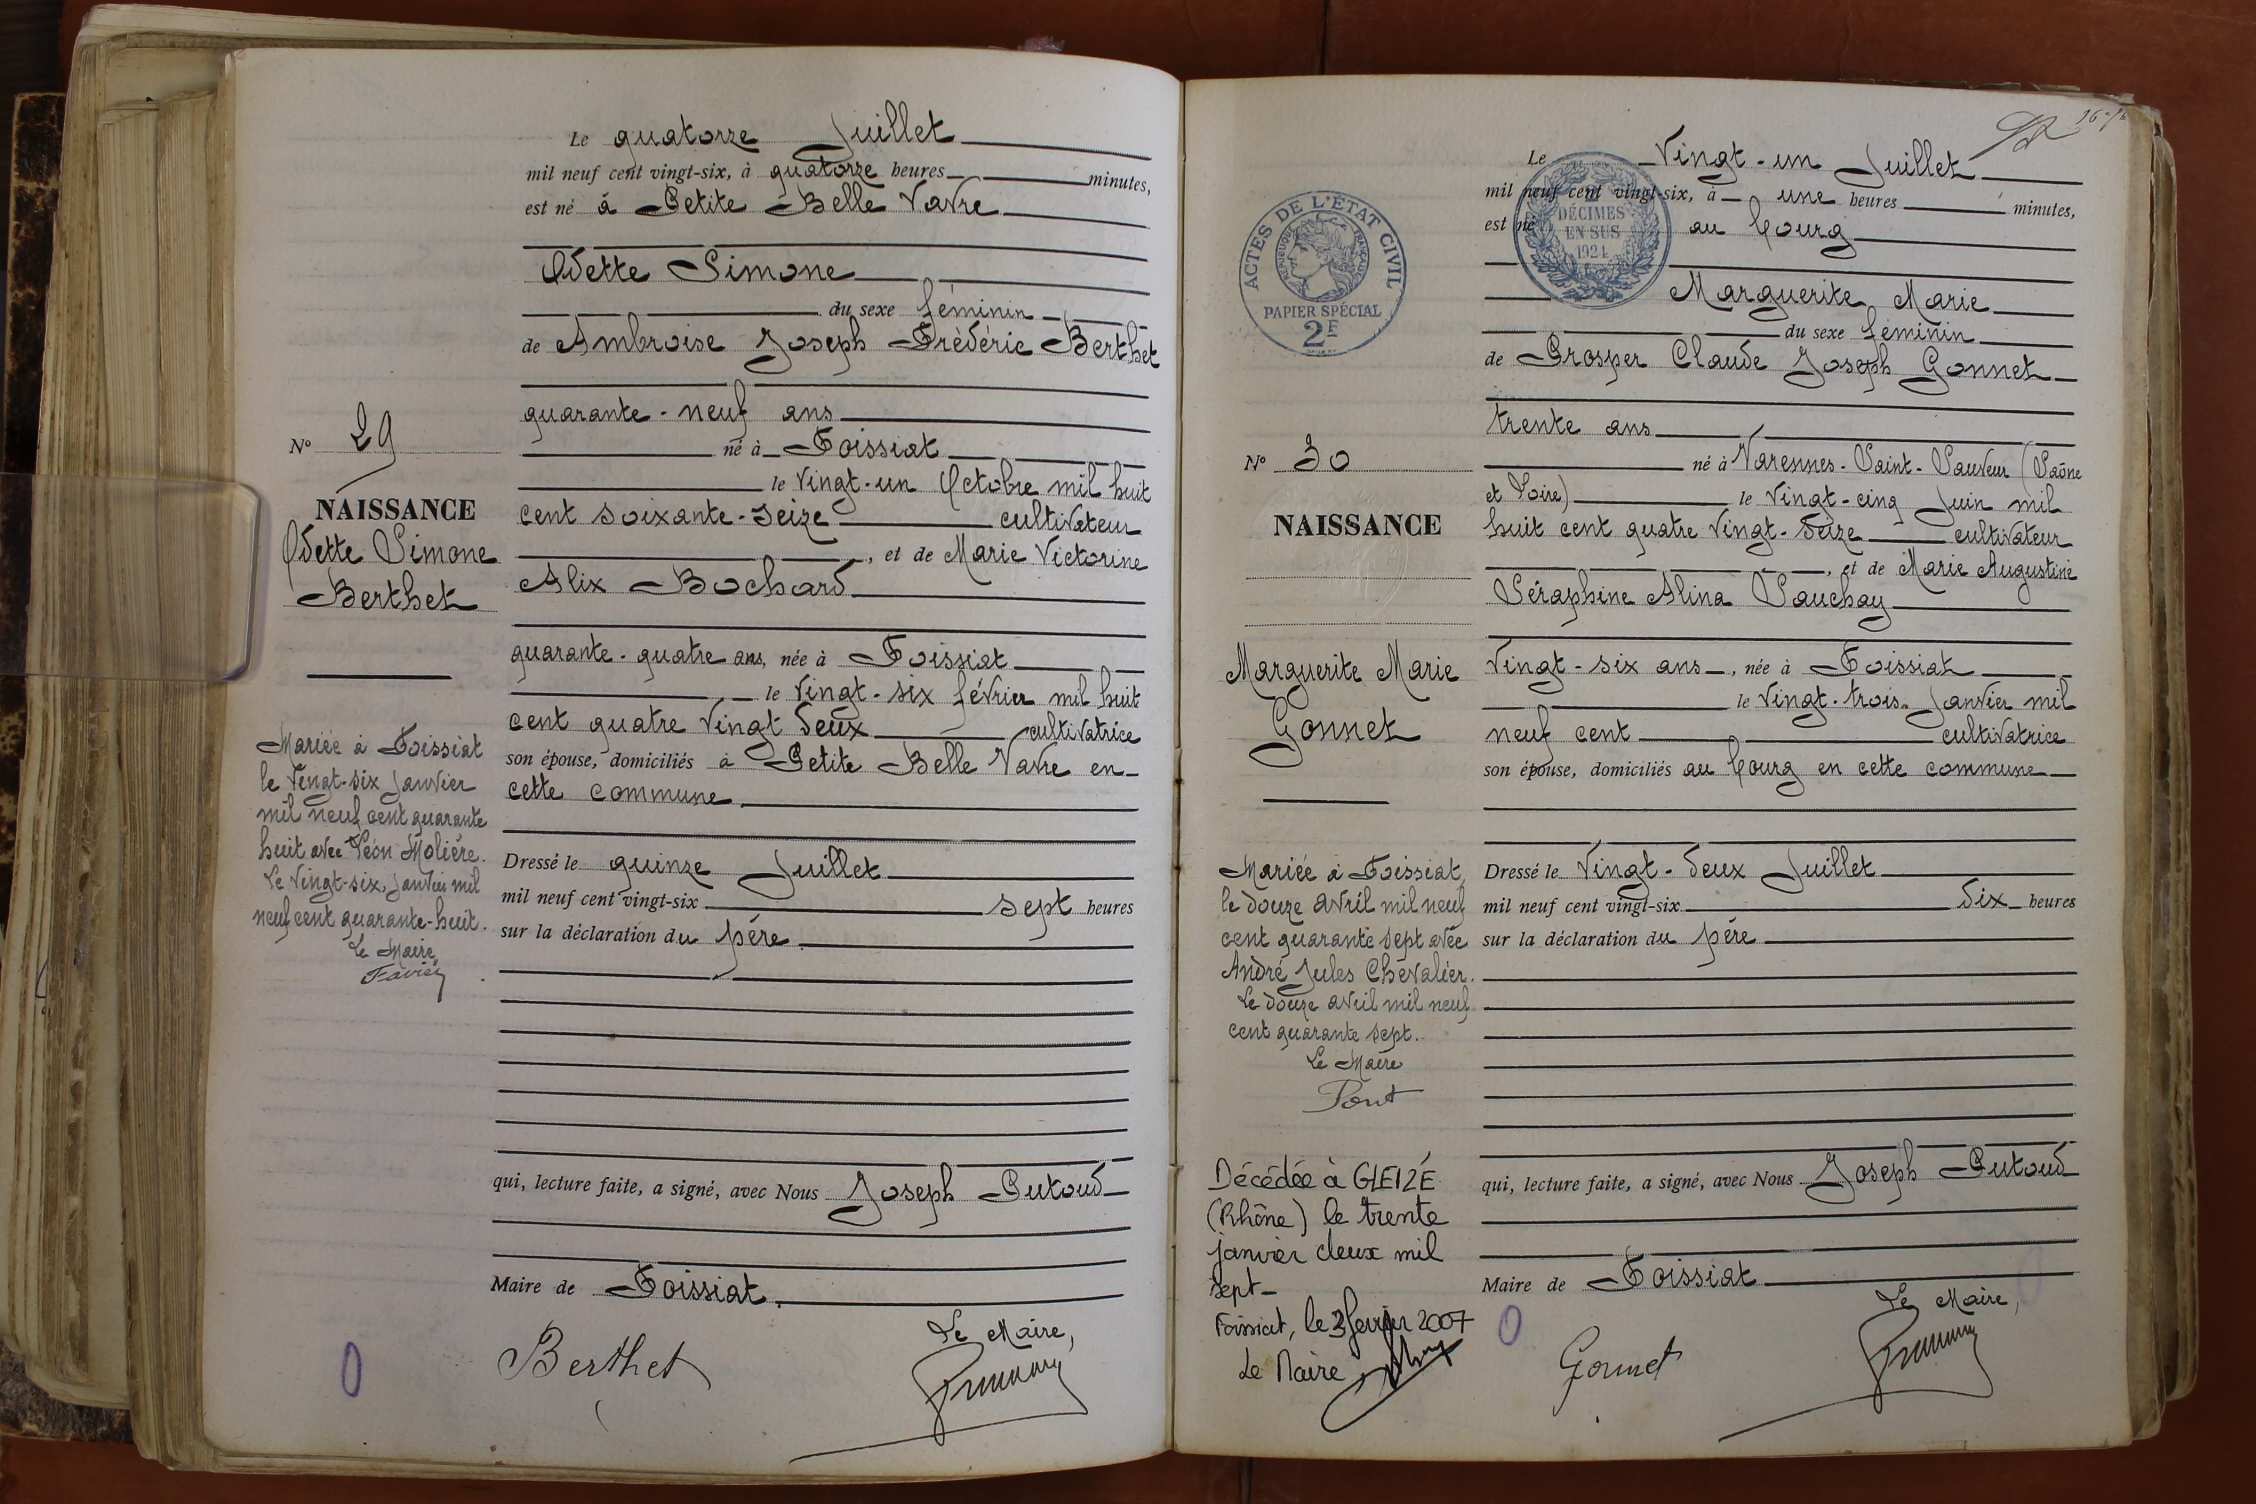 Le quatorze Juillet
mil neuf cent vingt-six, à quatorze heures minutes,
est né à Petite Belle Vavre
Odette Simone
du sexe féminin
de Ambroise Joseph Frédéric Berthet
quarante-neuf ans
né à Foissiat
le vingt-un Octobre mil huit
cent soixante-seize cultivateur
, et de Marie Victorine
Alix Bochard
quarante-quatre ans, née à Foissiat
le vingt-six février mil huit
cent quatre vingt deux cultivatrice
son épouse, domiciliés à Petite Belle Vavre en
cette commune
Dressé le quinze Juillet
mil neuf cent vingt-six sept heures
sur la déclaration du père
qui, lecture faite, a signé, avec Nous Joseph Putoud
Maire de Foissiat.
Le Maire,
Berthet
N° 29
NAISSANCE
Odette Simone
Berthet
Mariée à Foissiat
le vingt-six Janvier
mil neuf cent quarante
huit avec Léon Molière.
Le vingt-six, Janvier mil
neuf cent quarante-huit.
Le Maire,
Favier
ACTES DE L'ÉTAT CIVIL
RÉPUBLIQUE FRANÇAISE
PAPIER SPÉCIAL
2F
DÉCIMES
EN SUS
1924
Le Vingt-un Juillet
mil neuf cent vingt-six, à une heures minutes,
est né au bourg
Marguerite Marie
du sexe féminin
de Prosper Claude Joseph Gonnet
trente ans
né à Varennes-Saint-Sauveur (Saône
et Loire) le vingt-cinq Juin mil
huit cent quatre vingt-seize cultivateur
, et de Marie Augustine
Séraphine Alina Sauchay
Vingt-six ans, née à Foissiat
le vingt-trois Janvier mil
neuf cent cultivatrice
son épouse, domiciliés au bourg en cette commune
Dressé le Vingt-deux Juillet
mil neuf cent vingt-six dix heures
sur la déclaration du père
qui, lecture faite, a signé, avec Nous Joseph Putoud
Maire de Foissiat
Le Maire,
Gonnet
N° 30
NAISSANCE
Marguerite Marie
Gonnet
Mariée à Foissiat,
le douze avril mil neuf
cent quarante sept avec
André Jules Chevalier.
Le douze avril mil neuf
cent quarante sept.
Le Maire
Pont
Décédée à GLEIZÉ
(Rhône) le trente
janvier deux mil
sept-
Foissiat, le 3 février 2007
Le Maire